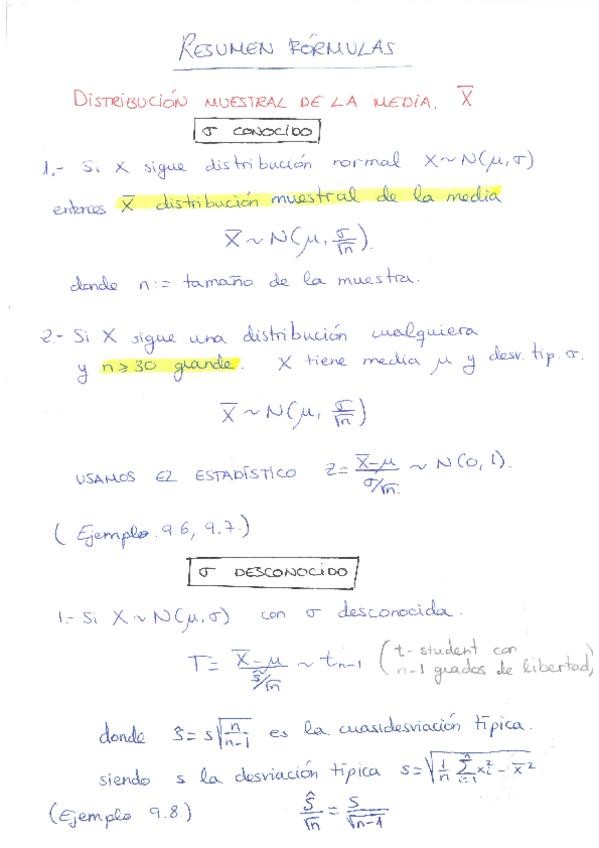 RESUMEN FÓRMULAS
DISTRIBUCIÓN MUESTRAL DE LA MEDIA. X̄
σ CONOCIDO
1.- Si X sigue distribución normal X~N(μ,σ)
entonces X̄ distribución muestral de la media
X̄ ~ N(μ, σ/√n).
donde n:= tamaño de la muestra.
2.- Si X sigue una distribución cualquiera
y n≥30 grande. X tiene media μ y desv. tip. σ.
X̄ ~ N(μ, σ/√n)
USAMOS EL ESTADÍSTICO Z= (X̄-μ)/(σ/√n) ~ N(0,1).
(Ejemplo 9.6, 9.7.)
σ DESCONOCIDO
1.- Si X ~ N(μ,σ) con σ desconocida.
T= (X̄-μ)/(ŝ/√n) ~ tn-1 (t-student con
n-1 grados de libertad)
donde ŝ= s√(n/(n-1)) es la cuasidesviación típica.
siendo s la desviación típica s=√(1/n ∑ⁿᵢ₌₁ xᵢ² - x̄²)
(Ejemplo 9.8) ŝ/√n = s/√(n-1)